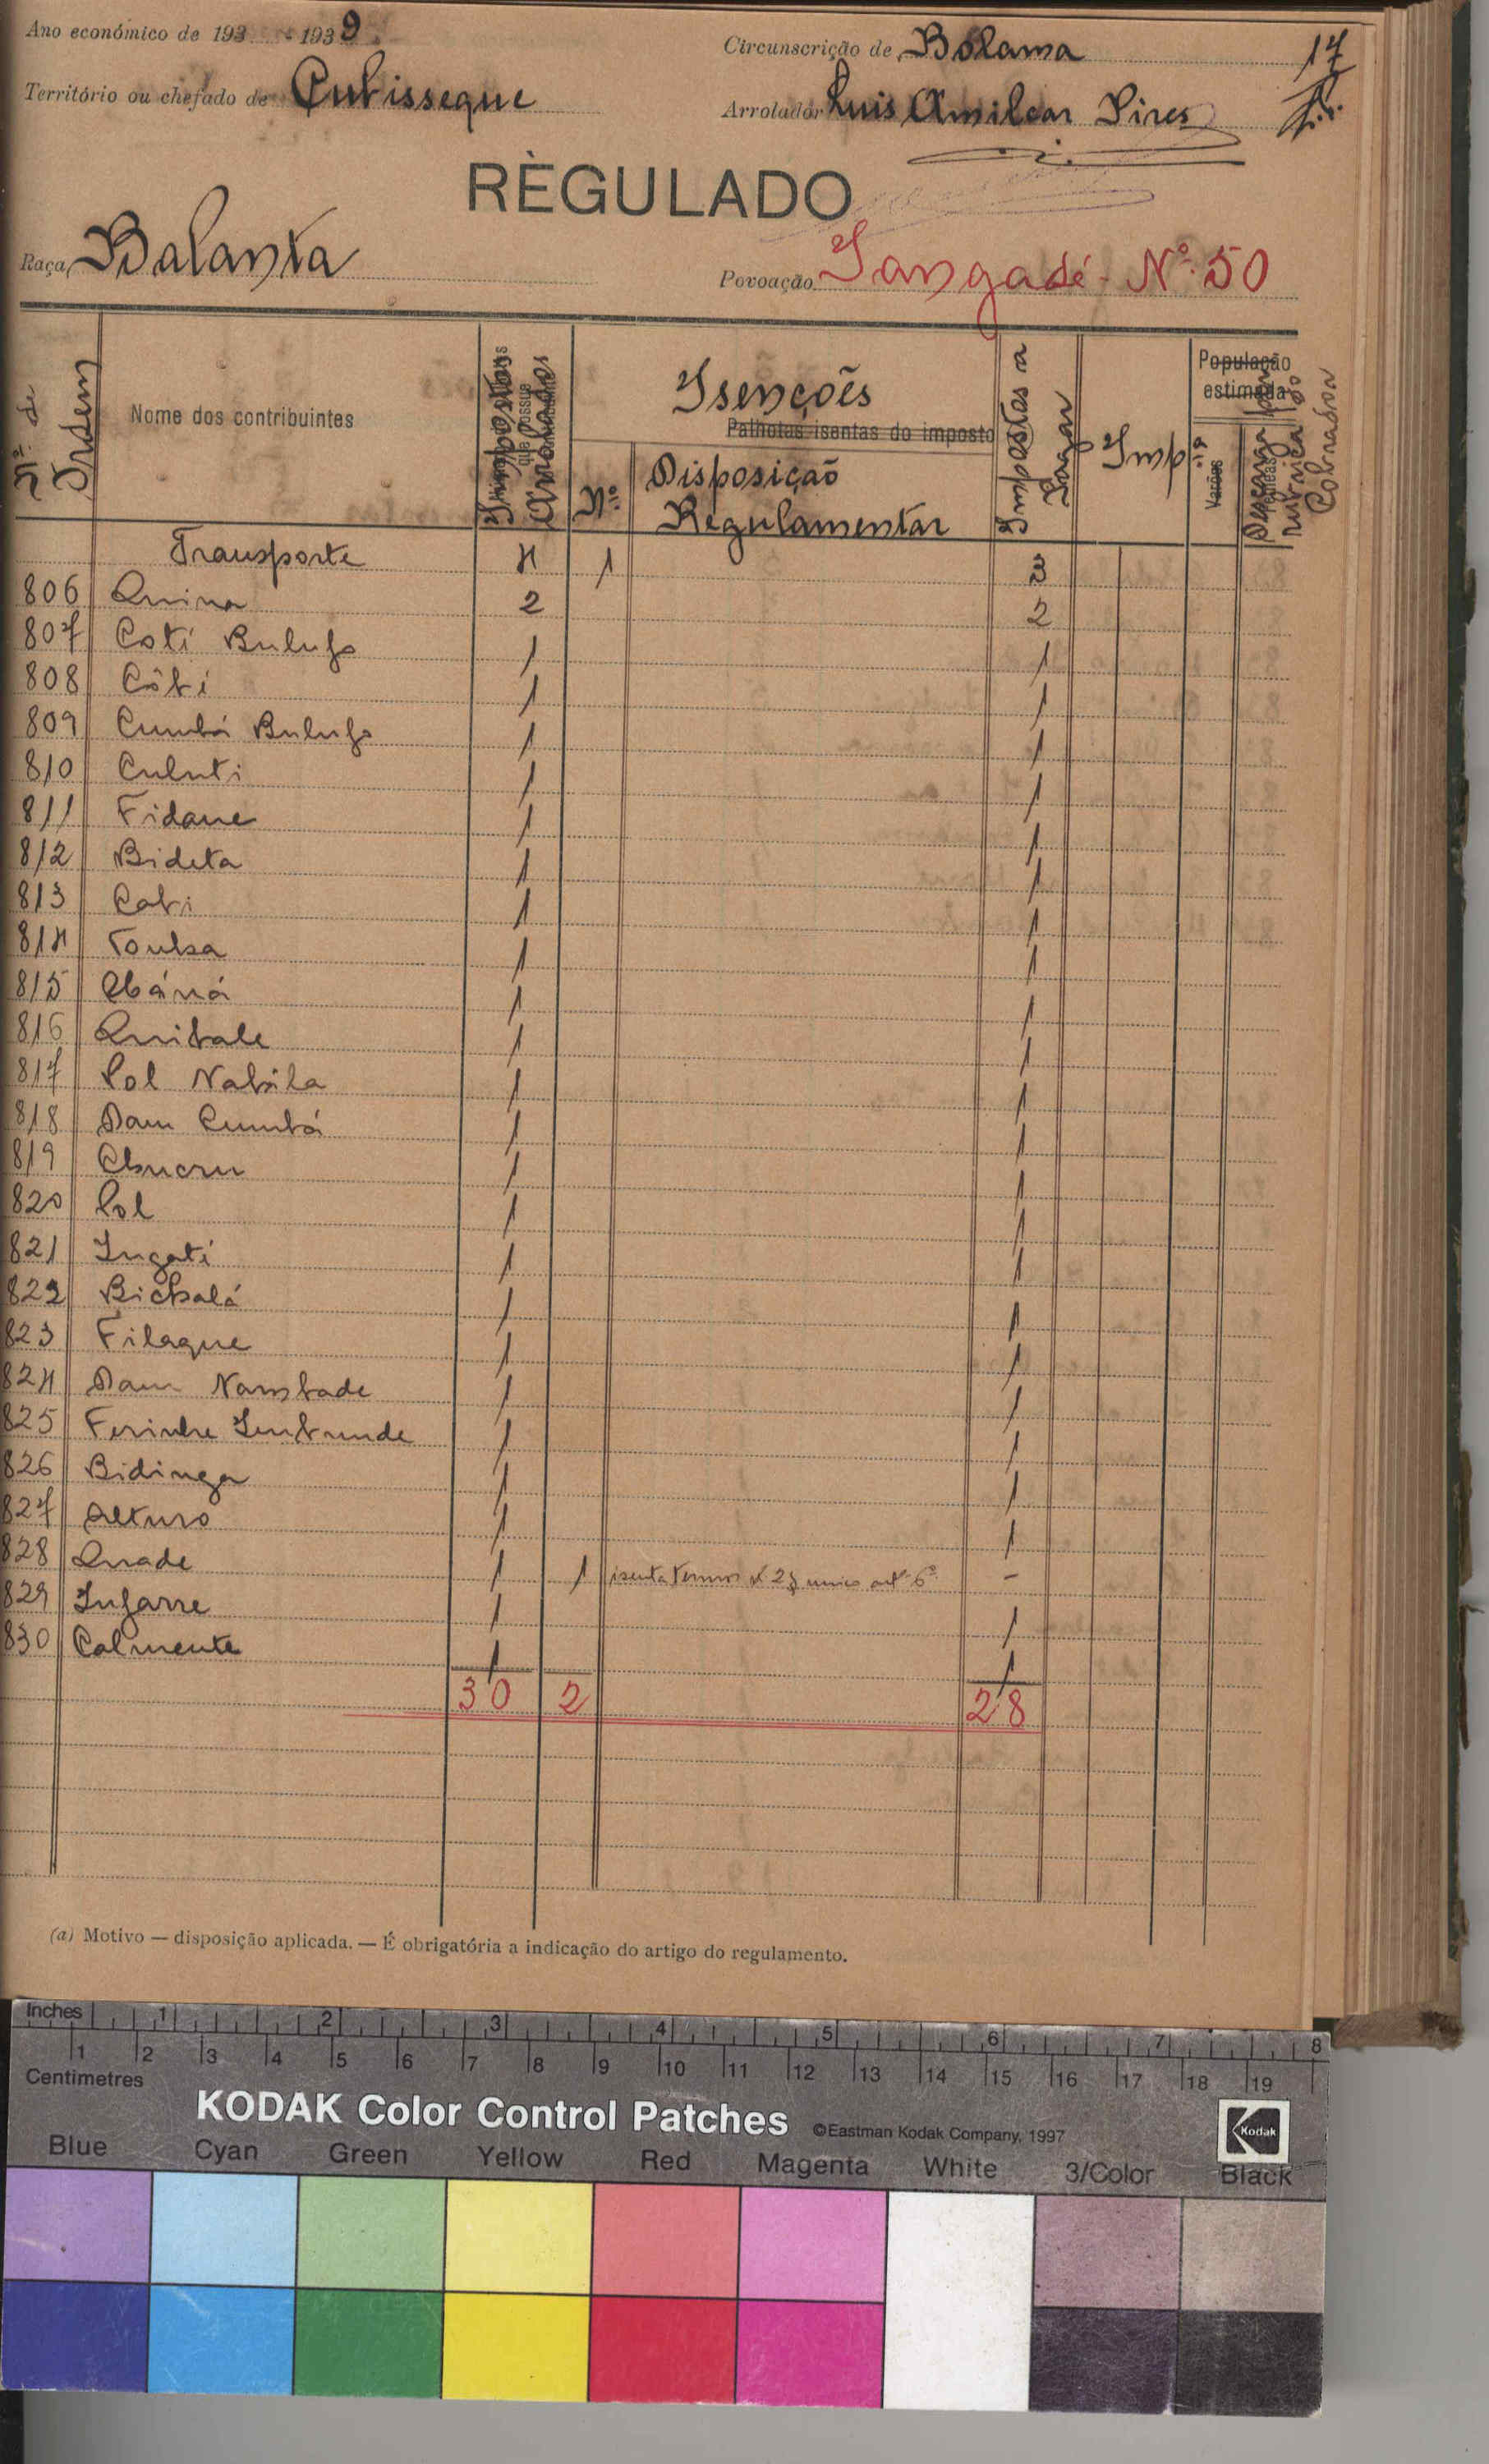 Ano económico de 193 - 1939
Circunscrição de Bolama
17
Território ou chefado de Cubisseque
Arrolador Luis Amilcar Pires
RÈGULADO
Raça Balanta
Povoação Tangadé - Nº 50
Nº de Ordem
Nome dos contribuintes
Impostos arrolados
Isenções
Palhotas isentas do imposto
Nº
Disposição Regulamentar
Impostos a Pagar
Imp
População estimada
Varões
rubrica do Cobrador
Transporte 4 1 3
806 Quina 2 2
807 Coti Bulufo 1 1
808 Côbi 1 1
809 Cumbá Bulufo 1 1
810 Culuti 1 1
811 Fidane 1 1
812 Bideta 1 1
813 Cabi 1 1
814 1 1
815 1 1
816 1 1
817 Pol Nabila 1 1
818 Dam Cumbá 1 1
819 1 1
820 Pol 1 1
821 Ingati 1 1
822 1 1
823 Filaque 1 1
824 Dam Nambade 1 1
825 1 1
826 Bidinga 1 1
827 1 1
828 Quade 1 1 isenta termos unico artº 6º -
829 Infarre 1 1
830 Calmente 1 1
30 2 28
(a) Motivo — disposição aplicada. — É obrigatória a indicação do artigo do regulamento.
Inches 1 2 3 4 5 6 7 8
1 2 3 4 5 6 7 8 9 10 11 12 13 14 15 16 17 18 19
Centimetres
KODAK Color Control Patches ©Eastman Kodak Company, 1997
Kodak
Blue Cyan Green Yellow Red Magenta White 3/Color Black